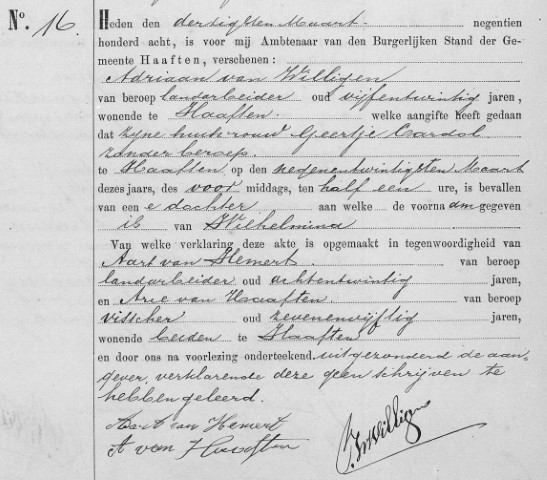 No. 16.
Heden den dertigsten Maart. negentien
honderd acht, is voor mij Ambtenaar van den Burgerlijken Stand der Ge-
meente Haaften, verschenen:
Adriaan van Willigen
van beroep landarbeider oud vijfentwintig jaren,
wonende te Haaften. welke aangifte heeft gedaan
dat zijne huisvrouw Geertje Cardol
zonder beroep.
te Haaften op den negenentwintigsten Maart
dezes jaars, des voor middags, ten half een ure, is bevallen
van een e dochter aan welke de voorna am gegeven
is van Wilhelmina
Van welke verklaring deze akte is opgemaakt in tegenwoordigheid van
Aart van Hemert. van beroep
landarbeider oud achtentwintig jaren,
en Arie van Haaften. van beroep
visscher oud zevenenvijftig jaren,
wonende beiden te Haaften
en door ons na voorlezing onderteekend. uitgezonderd de aan-
gever, verklarende deze geen schrijven te
hebben geleerd.
Aart van Hemert
A van Haaften